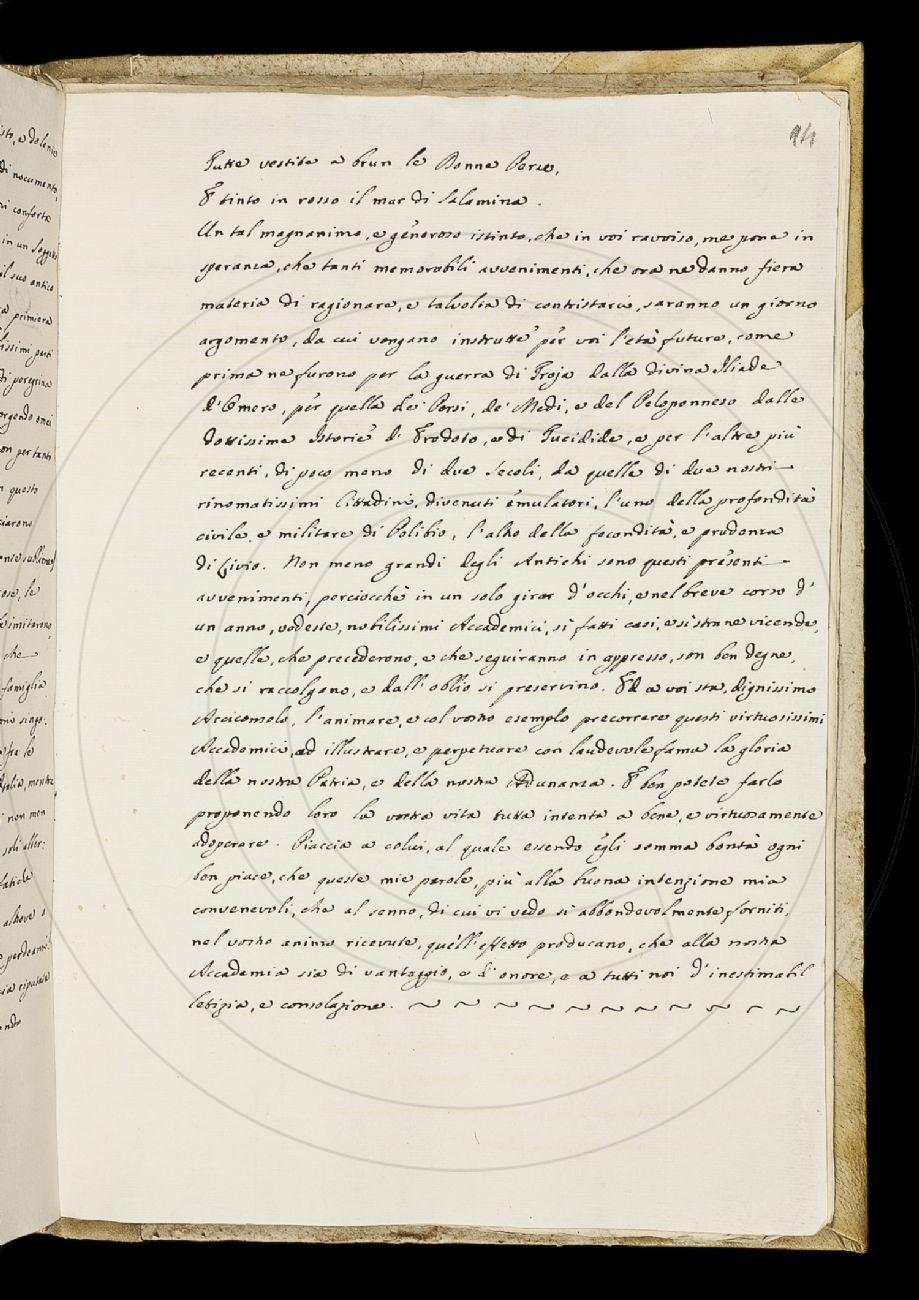 14
Tutte vestite a brun le Donne Perse,
E tinto in rosso il mar di Salamina.
Un tal magnanimo, e generoso istinto, che in voi ravviso, me pone in
speranza, che tanti memorabili avvenimenti, che ora ne danno fiera
materia di ragionare, e talvolta di contristarci, saranno un giorno
argomento, da cui vengano instrutte per voi l'età future, come
prima ne furono per la guerra di Troja dalla divina Iliade
d'Omero, per quella de' Persi, de' Medi, e del Peloponneso dalle
dottissime Istorie d'Erodoto, e di Tucidide, e per l'altre più
recenti, di poco meno di due secoli, da quelle di due nostri
rinomatissimi Cittadini, divenuti emulatori, l'uno della profondità
civile, e militare di Polibio, l'altro della fecondità, e prudenza
di Livio. Non meno grandi degli Antichi sono questi presenti
avvenimenti, perciocchè in un solo girar d'occhi, e nel breve corso d'
un anno, vedeste, nobilissimi Accademici, sì fatti casi, e sì strane vicende,
e quelle, che precederono, e che seguiranno in appresso, son ben degne,
che si raccolgano, e dall'oblio si preservino. Ed a voi sta, dignissimo
Arciconsolo, l'animare, e col vostro esemplo precorrere questi virtuosissimi
Accademici, ad illustrare, e perpetuare con laudevole fama la gloria
della nostra Patria, e della nostra Adunanza. E ben potete farlo
proponendo loro la vostra vita tutta intenta a bene, e virtuosamente
adoperare. Piaccia a colui, al quale essendo egli somma bontà ogni
ben piace, che queste mie parole, più alla buona intenzione mia
convenevoli, che al senno, di cui vi vedo sì abbondevolmente forniti,
nel vostro animo ricevute, quell'effetto producano, che alla nostra
Accademia sia di vantaggio, e d'onore, e a tutti noi d'inestimabil
letizia, e consolazione.